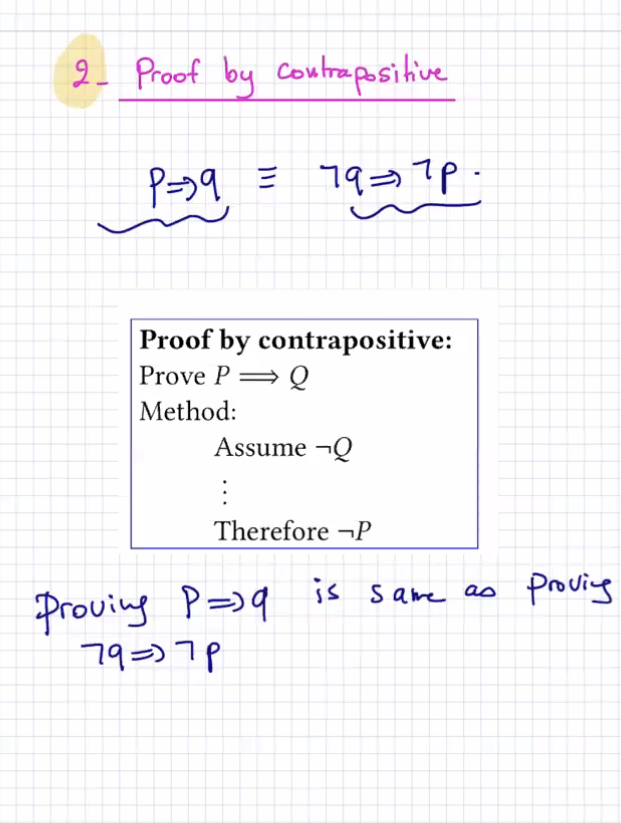 2- Proof by contrapositive
P⇒q ≡ ¬q⇒¬p.
Proof by contrapositive:
Prove P ⟹ Q
Method:
Assume ¬Q
⋮
Therefore ¬P
Proving P⇒q is same as proving
¬q⇒¬p